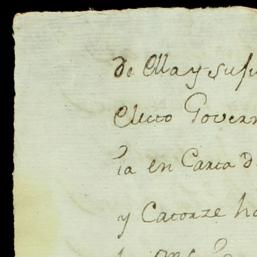 de ella y su
electo Govern
ia en Carta d
y Catorze ho